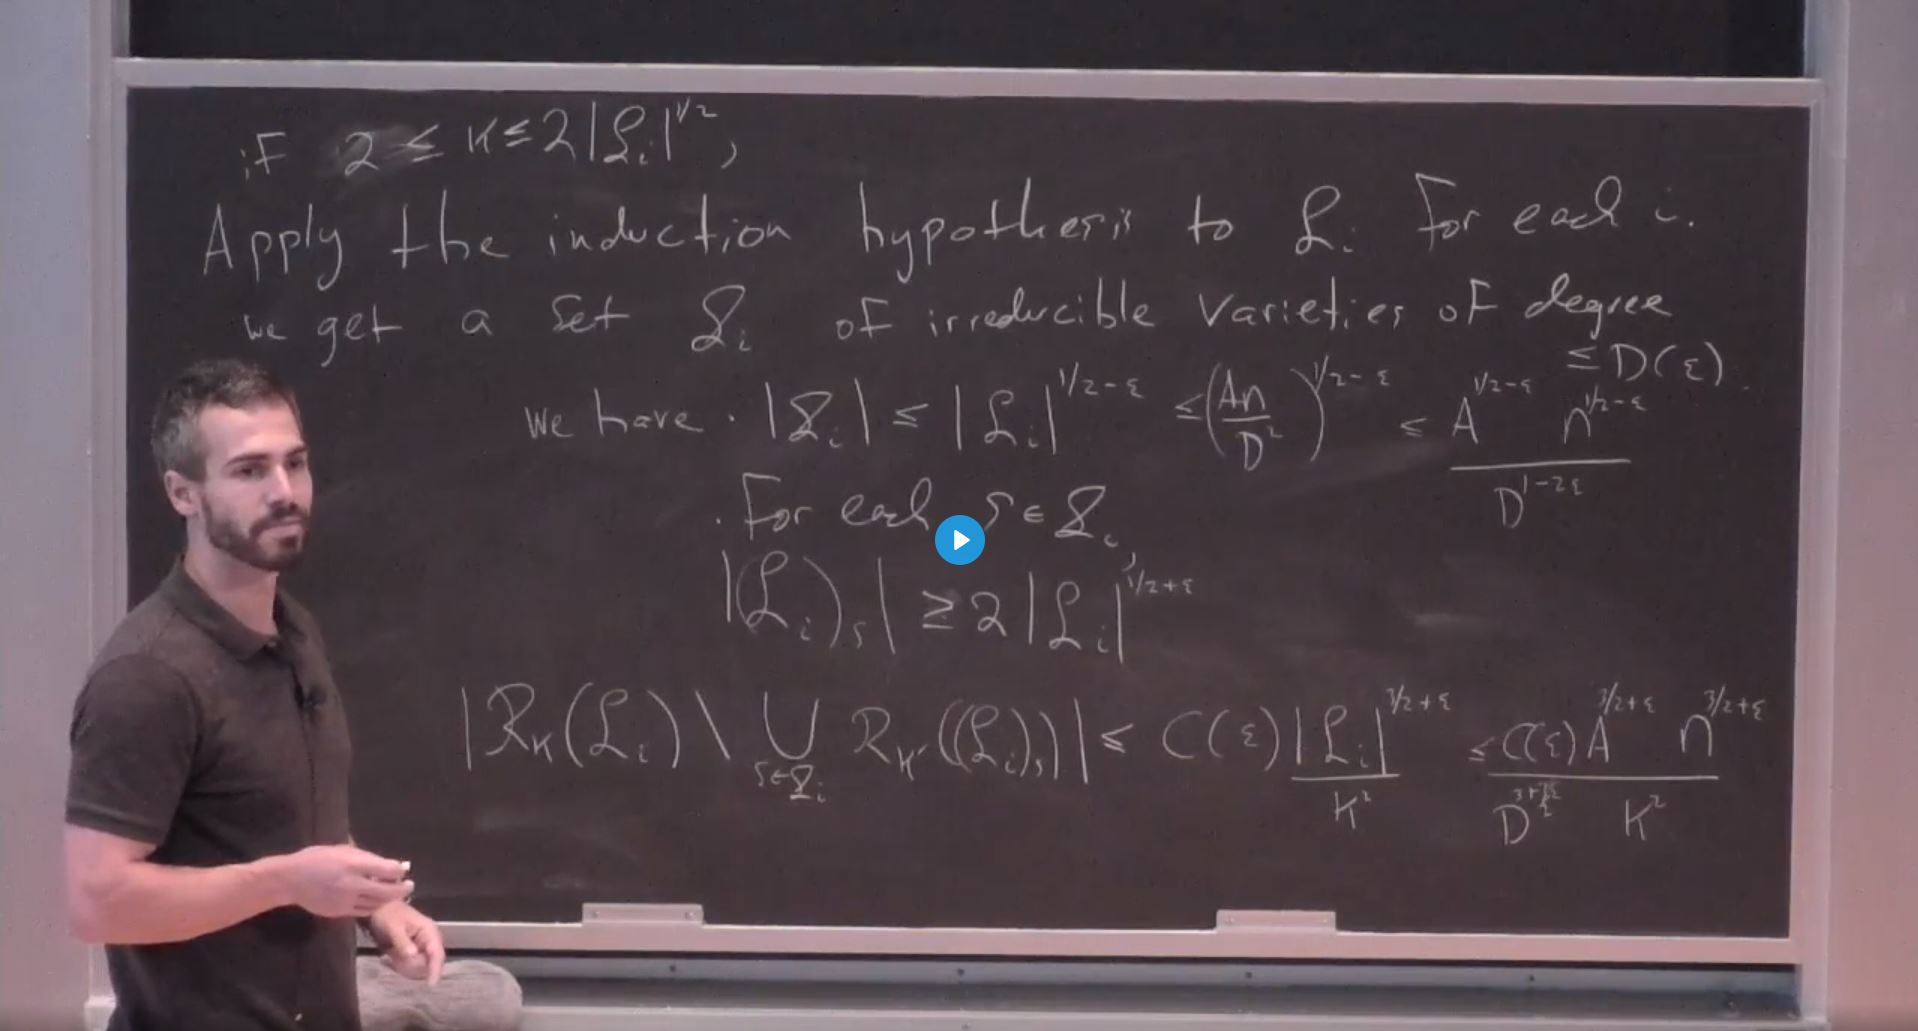 if 2 ≤ K ≤ 2|𝔏_i|^{1/2},
Apply the induction hypothesis to 𝔏_i for each i.
we get a set 𝒮_i of irreducible varieties of degree
≤ D(ε).
we have · |𝒮_i| ≤ |𝔏_i|^{1/2-ε} ≤ (An/D^2)^{1/2-ε} ≤ A^{1/2-ε} n^{1/2-ε} / D^{1-2ε}
· For each S ∈ 𝒮_i,
|(𝔏_i)_S| ≥ 2|𝔏_i|^{1/2+ε}
|R_K(𝔏_i) \ ⋃_{S∈𝒮_i} R_{K'}((𝔏_i)_S)| ≤ C(ε)|𝔏_i|^{3/2+ε} / K^2 ≤ C(ε) A^{3/2+ε} n^{3/2+ε} / D K^2